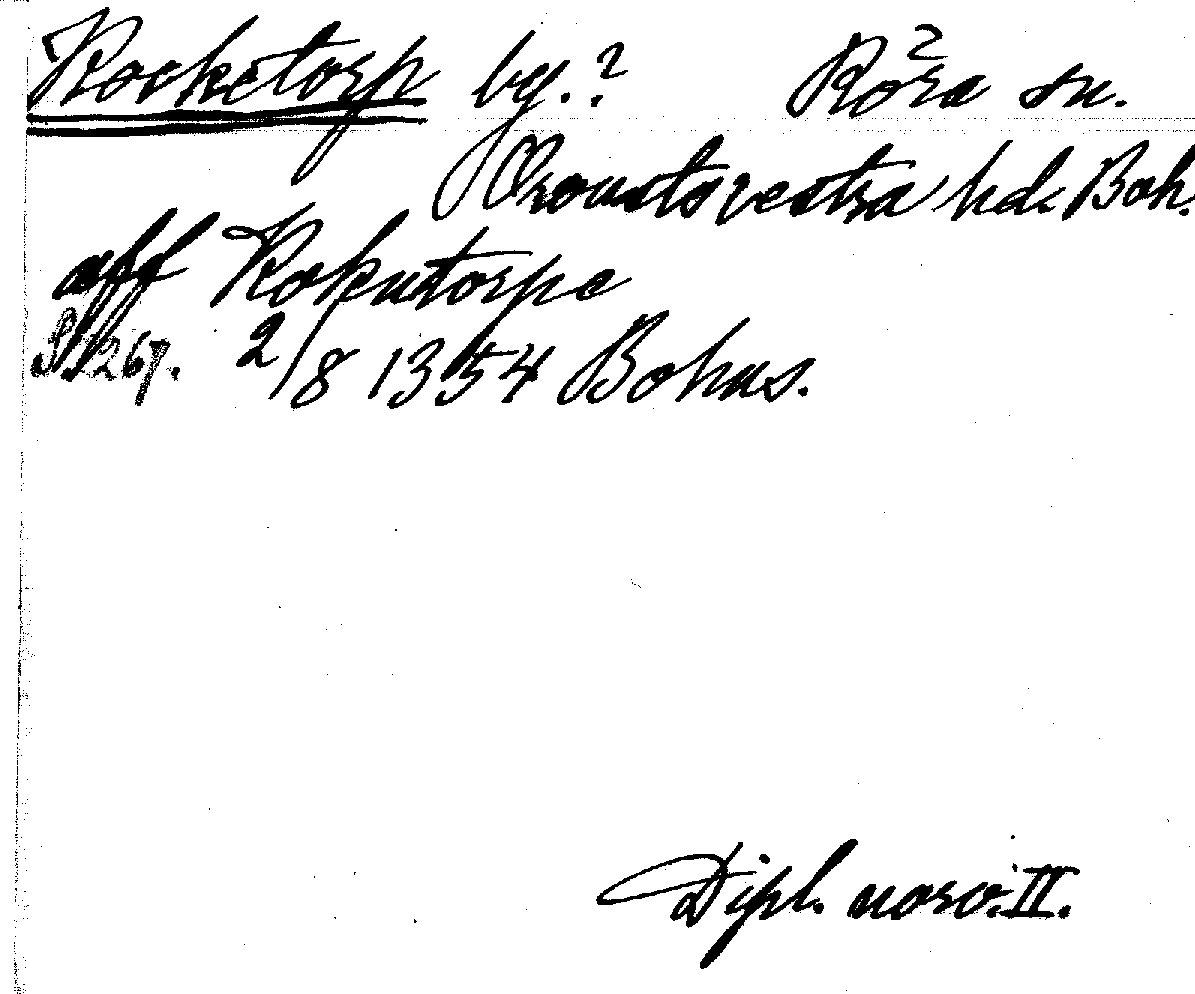 Rocketorp by.? Röra sn.
Orousts vestra hd. Boh.
aff Rokutorpe
S. 267. 2/8 1354 Bohus.
Dipl. norv. II.